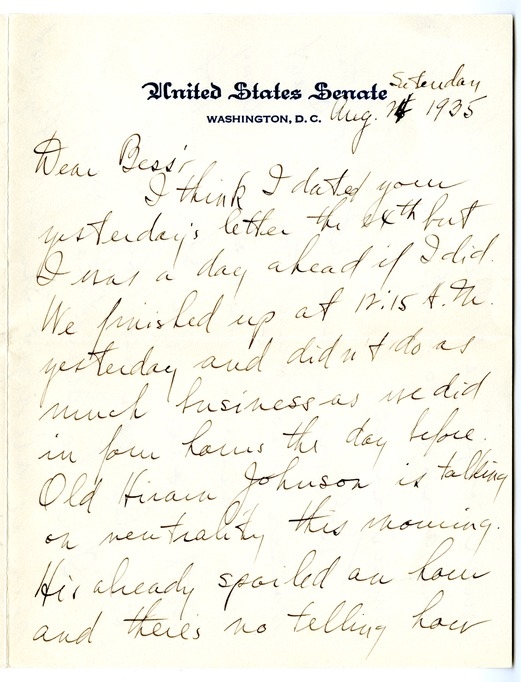 United States Senate
WASHINGTON, D. C.
Saturday
Aug. 1935
Dear Bess:
I think I dated your
yesterday's letter the
but
I was a day ahead if I did.
We finished up at 12.15 A.M.
yesterday and didn't do as
much business as we did
in four hours the day before.
Old Hiram Johnson is talking
on neutrality this morning.
His already spoiled an hour
and there's no telling how